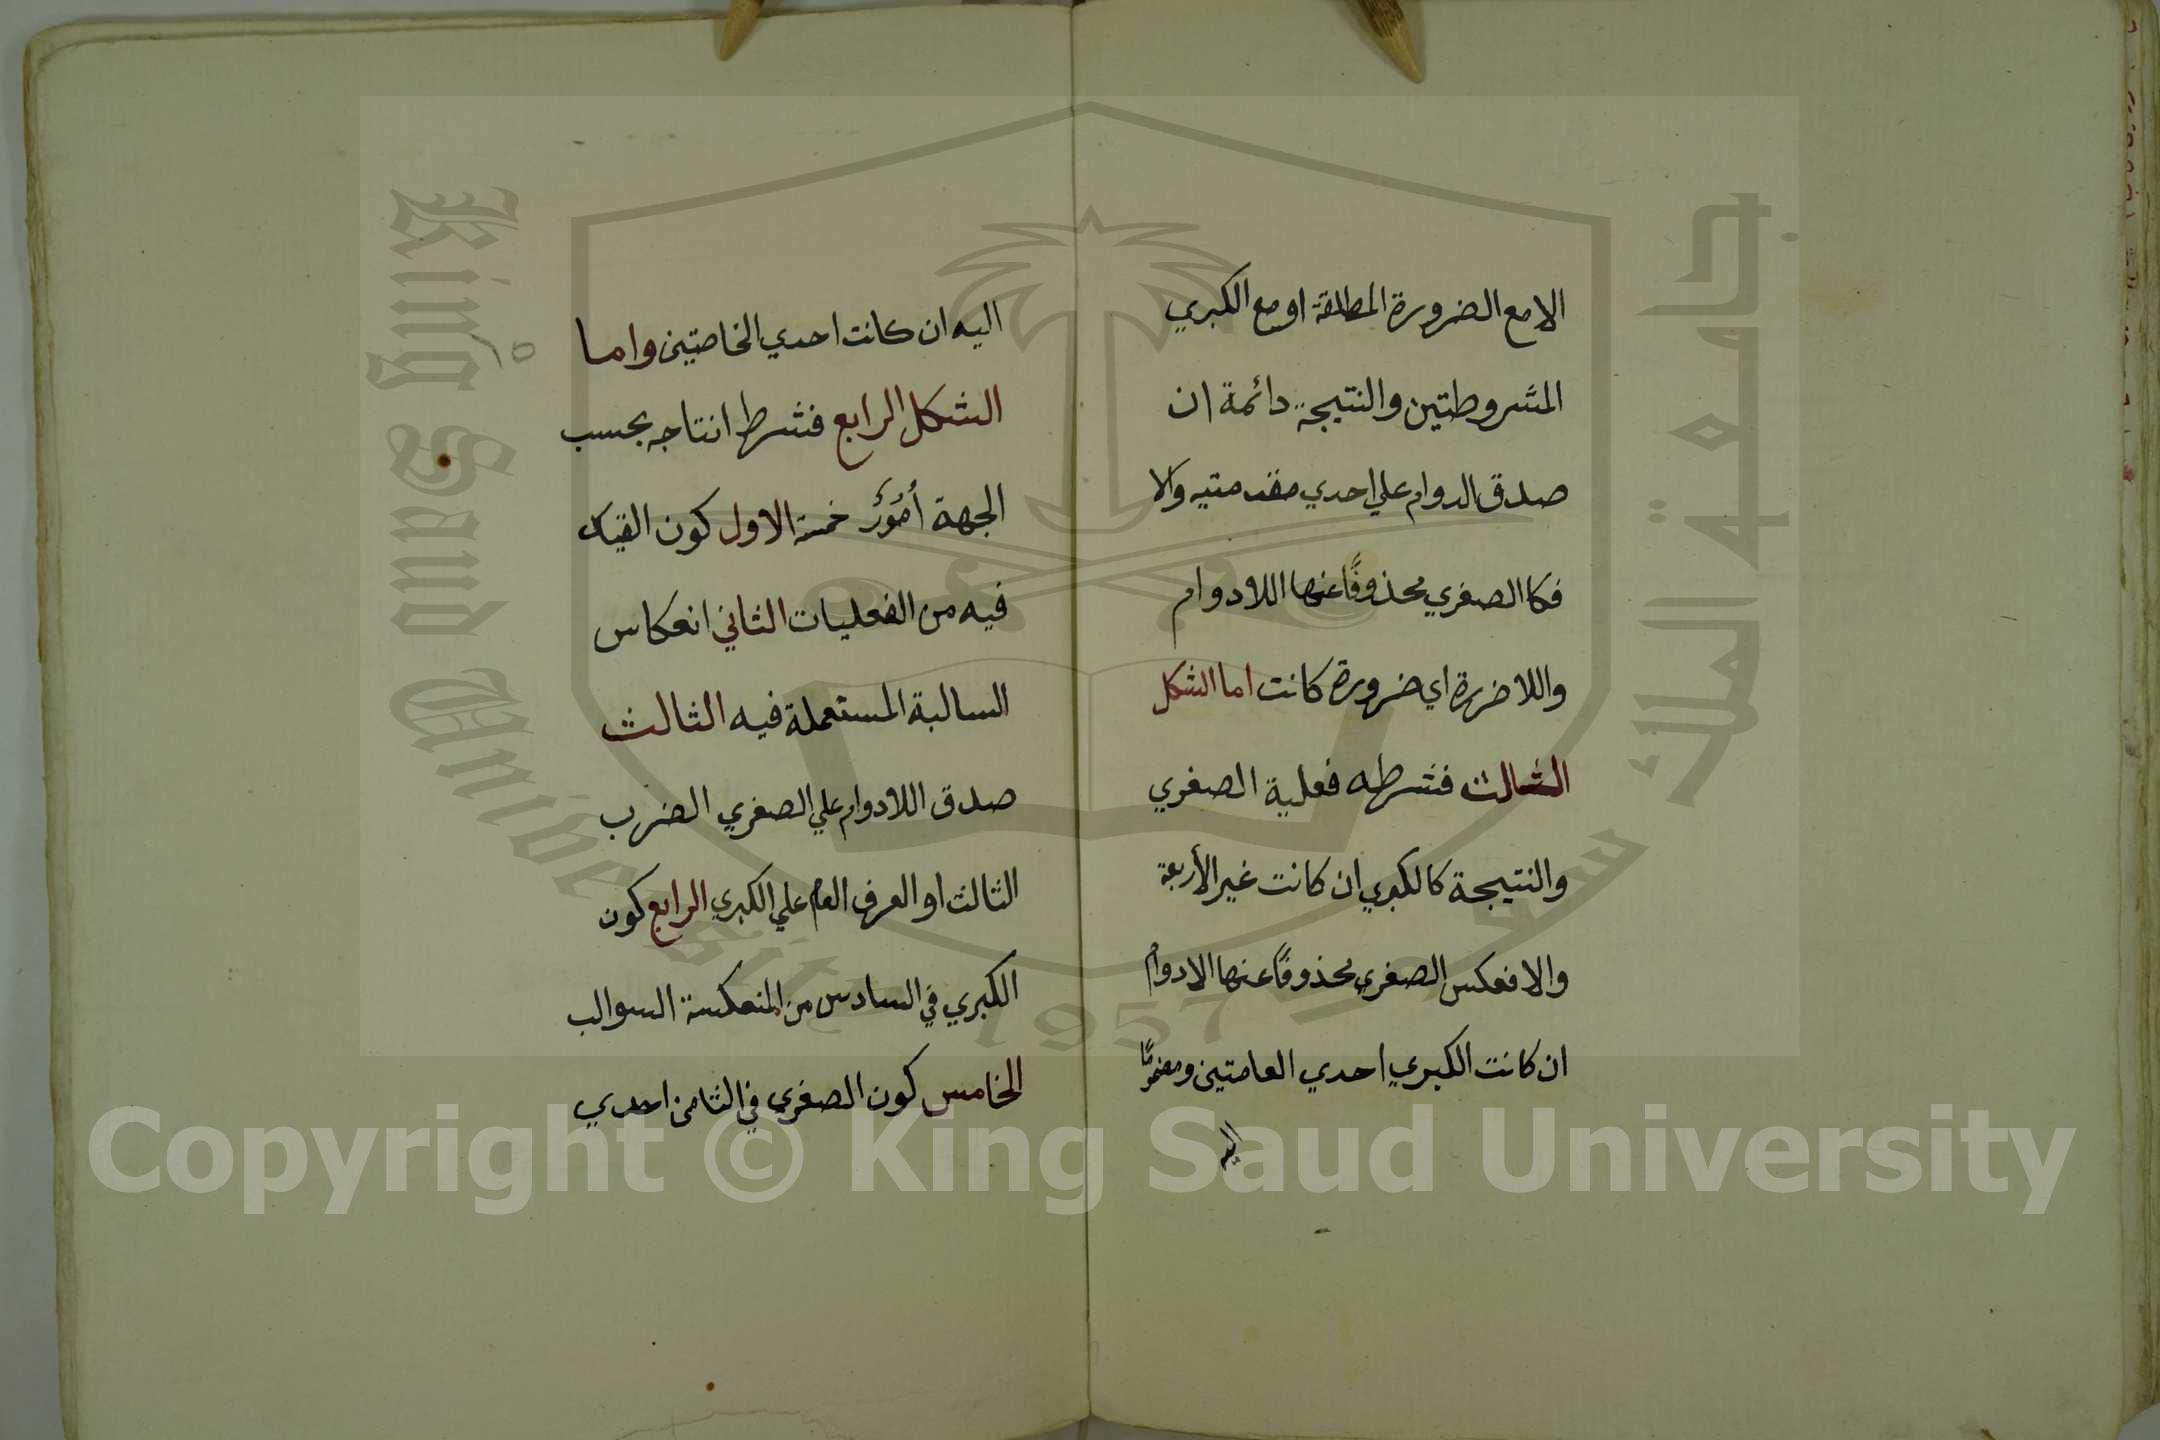 الامع الضرورة المطلقة اومع الكبري
المشروطتين والنتيجة دائمة ان
صدق الدوام علي احدي مقدمتيه والا
فكا الصغري محذوفًا عنها اللادوام
واللاضررة اي ضرورة كانت اما الشكل
الثالث فشرطه فعلية الصغري
والنتيجة كالكبري ان كانت غير الأربعة
والا فعكس الصغري محذوفًا عنها الادوام
ان كانت الكبري احدي العامتين ومضمومًا
اليه
اليه ان كانت احدي الخاصتين واما
١٥
الشكل الرابع فشرط انتاجه بحسب
الجهة أمُورٌ خمسة الاول كون القياس
فيه من الفعليات الثاني انعكاس
السالبة المستعملة فيه الثالث
صدق اللادوام علي الصغري الضرب
الثالث او العرفي العام علي الكبري الرابع كون
الكبري في السادس من المنعكسة السوالب
الخامس كون الصغري في الثامن احدي
جامعة الملك سعود
King Saud University
1957
Copyright © King Saud University